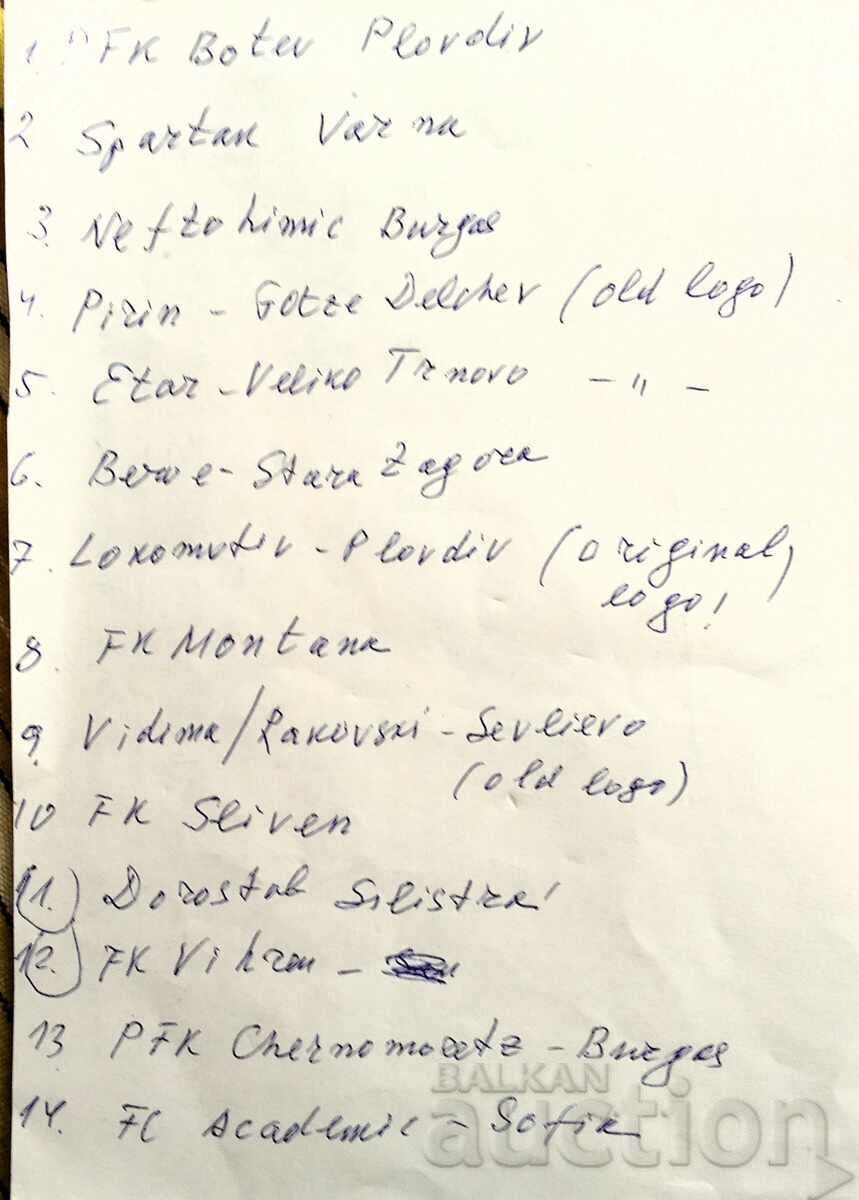 1. PFK Botev Plovdiv
2 Spartak Varna
3. Neftohimic Burgas
4. Pirin - Gotze Delchev (old logo)
5. Etar - Veliko Trnovo - " -
6. Beroe - Stara Zagora
7. Lokomotiv - Plovdiv (original,
logo!
8. FK Montana
9. Vidima/Rakovski - Sevlievo
(old logo)
10 FK Sliven
11. Dorostal Silistra
12. FK Vihren -
13 PFK Chernomoretz - Burgas
14. FC Academic - Sofia
BALKAN
auction